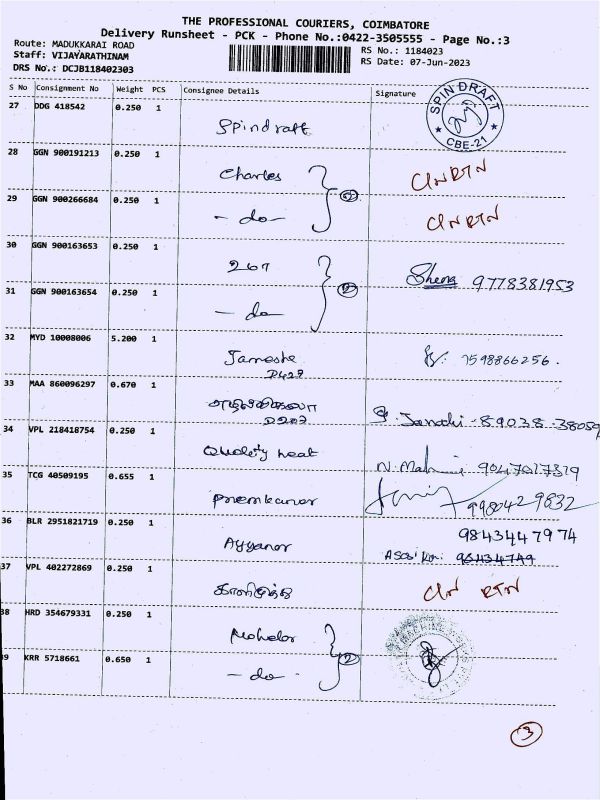 THE PROFESSIONAL COURIERS, COIMBATORE
Delivery Runsheet - PCK - Phone No.:0422-3505555 - Page No.:3
Route: MADUKKARAI ROAD
Staff: VIJAYARATHINAM
DRS No.: DCJB118402303
RS No.: 1184023
RS Date: 07-Jun-2023
S No Consignment No Weight PCS Consignee Details Signature
27 DDG 418542 0.250 1 Spindraft SPIN DRAFT CBE-21
28 GGN 900191213 0.250 1 Charles CN RTN
29 GGN 900266684 0.250 1 - do - CN RTN
30 GGN 900163653 0.250 1 267 9778381953
31 GGN 900163654 0.250 1 - do -
32 MYD 10008006 5.200 1 7598866256.
33 MAA 860096297 0.670 1 Janaki - 89038-38059
34 VPL 218418754 0.250 1 Quality heat 9047017319
35 TCG 40509195 0.655 1 Premkumar 9980429832
36 BLR 2951821719 0.250 1 Ayyanar 9843447974
37 VPL 402272869 0.250 1 CN RTN
38 HRD 354679331 0.250 1
39 KRR 5718661 0.650 1 - do -
3